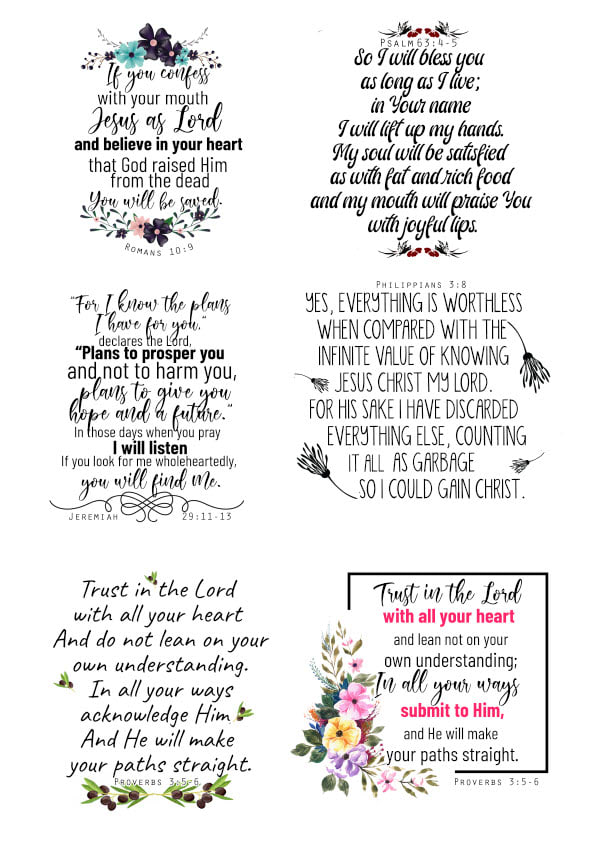 If you confess
with your mouth
Jesus as Lord
and believe in your heart
that God raised Him
from the dead
You will be saved.
Romans 10:9
Psalm 63:4-5
So I will bless you
as long as I live;
in Your name
I will lift up my hands.
My soul will be satisfied
as with fat and rich food
and my mouth will praise You
with joyful lips.
"For I know the plans
I have for you."
declares the Lord,
"Plans to prosper you
and not to harm you,
plans to give you
hope and a future."
In those days when you pray
I will listen
If you look for me wholeheartedly,
you will find Me.
Jeremiah 29:11-13
Philippians 3:8
YES, EVERYTHING IS WORTHLESS
WHEN COMPARED WITH THE
INFINITE VALUE OF KNOWING
JESUS CHRIST MY LORD.
FOR HIS SAKE I HAVE DISCARDED
EVERYTHING ELSE, COUNTING
IT ALL AS GARBAGE
SO I COULD GAIN CHRIST.
Trust in the Lord
with all your heart
And do not lean on your
own understanding.
In all your ways
acknowledge Him
And He will make
your paths straight.
Proverbs 3:5-6
Trust in the Lord
with all your heart
and lean not on your
own understanding;
In all your ways
submit to Him,
and He will make
your paths straight.
Proverbs 3:5-6